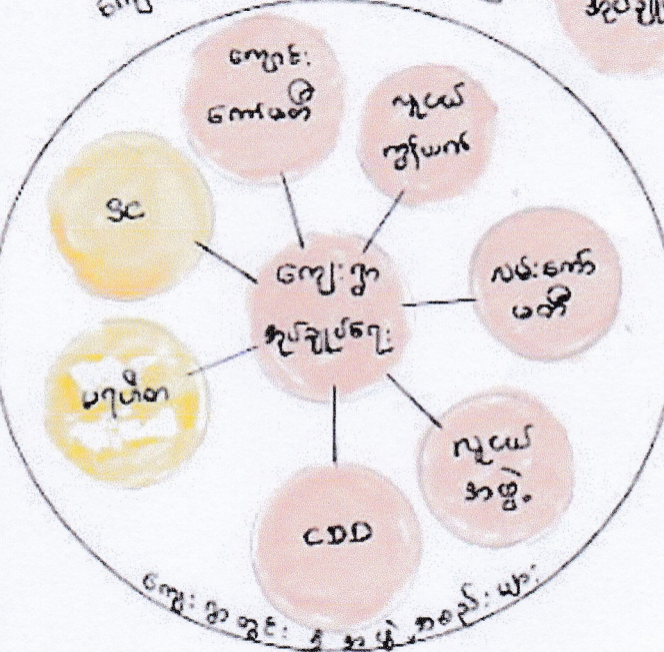 ကျောင်း
ကော်မတီ
လူငယ်
ကွန်ယက်
SC
ကျေးရွာ
အုပ်ချုပ်ရေး
လမ်းကော်
မတီ
ပရဟိတ
လူငယ်
အဖွဲ့
CDD
ကျေးရွာတွင်းရှိ အဖွဲ့အစည်းများ